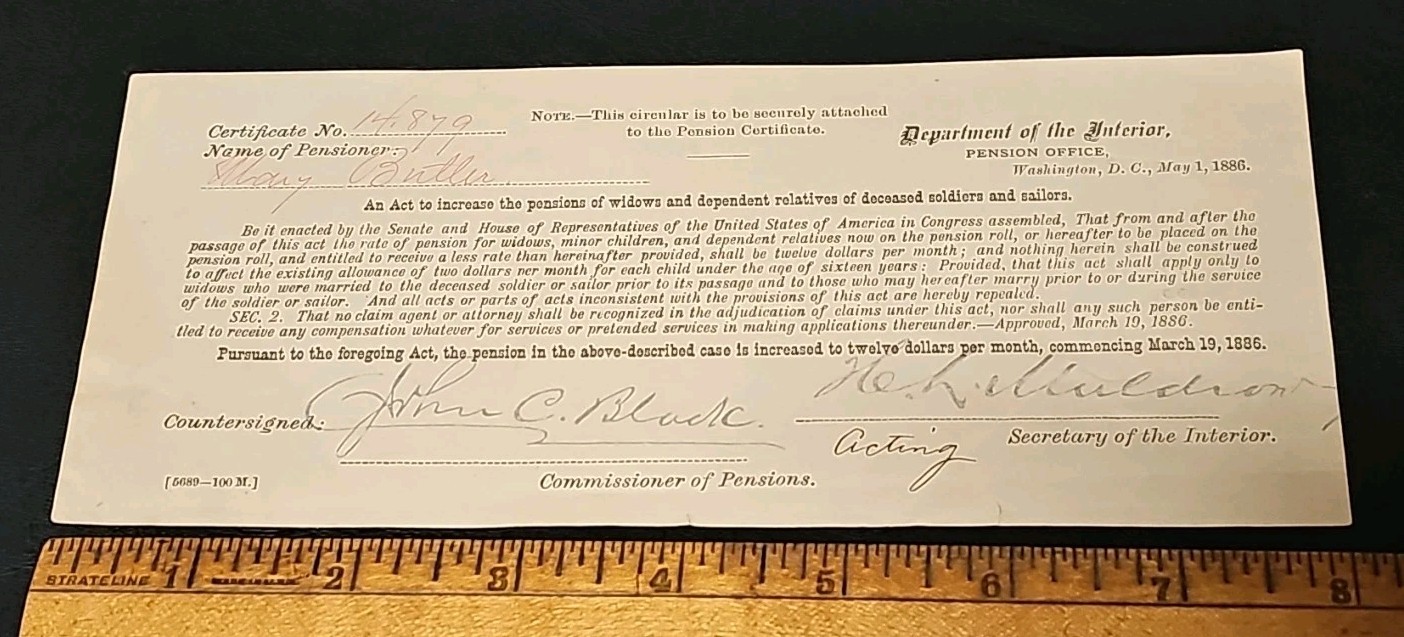 Certificate No. 14,879
Name of Pensioner:
Mary Butler
NOTE.—This circular is to be securely attached
to the Pension Certificate.
Department of the Interior,
PENSION OFFICE,
Washington, D. C., May 1, 1886.
An Act to increase the pensions of widows and dependent relatives of deceased soldiers and sailors.
Be it enacted by the Senate and House of Representatives of the United States of America in Congress assembled, That from and after the
passage of this act the rate of pension for widows, minor children, and dependent relatives now on the pension roll, or hereafter to be placed on the
pension roll, and entitled to receive a less rate than hereinafter provided, shall be twelve dollars per month; and nothing herein shall be construed
to affect the existing allowance of two dollars per month for each child under the age of sixteen years: Provided, that this act shall apply only to
widows who were married to the deceased soldier or sailor prior to its passage and to those who may hereafter marry prior to or during the service
of the soldier or sailor. And all acts or parts of acts inconsistent with the provisions of this act are hereby repealed.
SEC. 2. That no claim agent or attorney shall be recognized in the adjudication of claims under this act, nor shall any such person be enti-
tled to receive any compensation whatever for services or pretended services in making applications thereunder.—Approved, March 19, 1886.
Pursuant to the foregoing Act, the pension in the above-described case is increased to twelve dollars per month, commencing March 19, 1886.
H. L. Muldrow
Countersigned: John C. Black.
Acting Secretary of the Interior.
[5689—100 M.]
Commissioner of Pensions.
STRATELINE 1 2 3 4 5 6 7 8